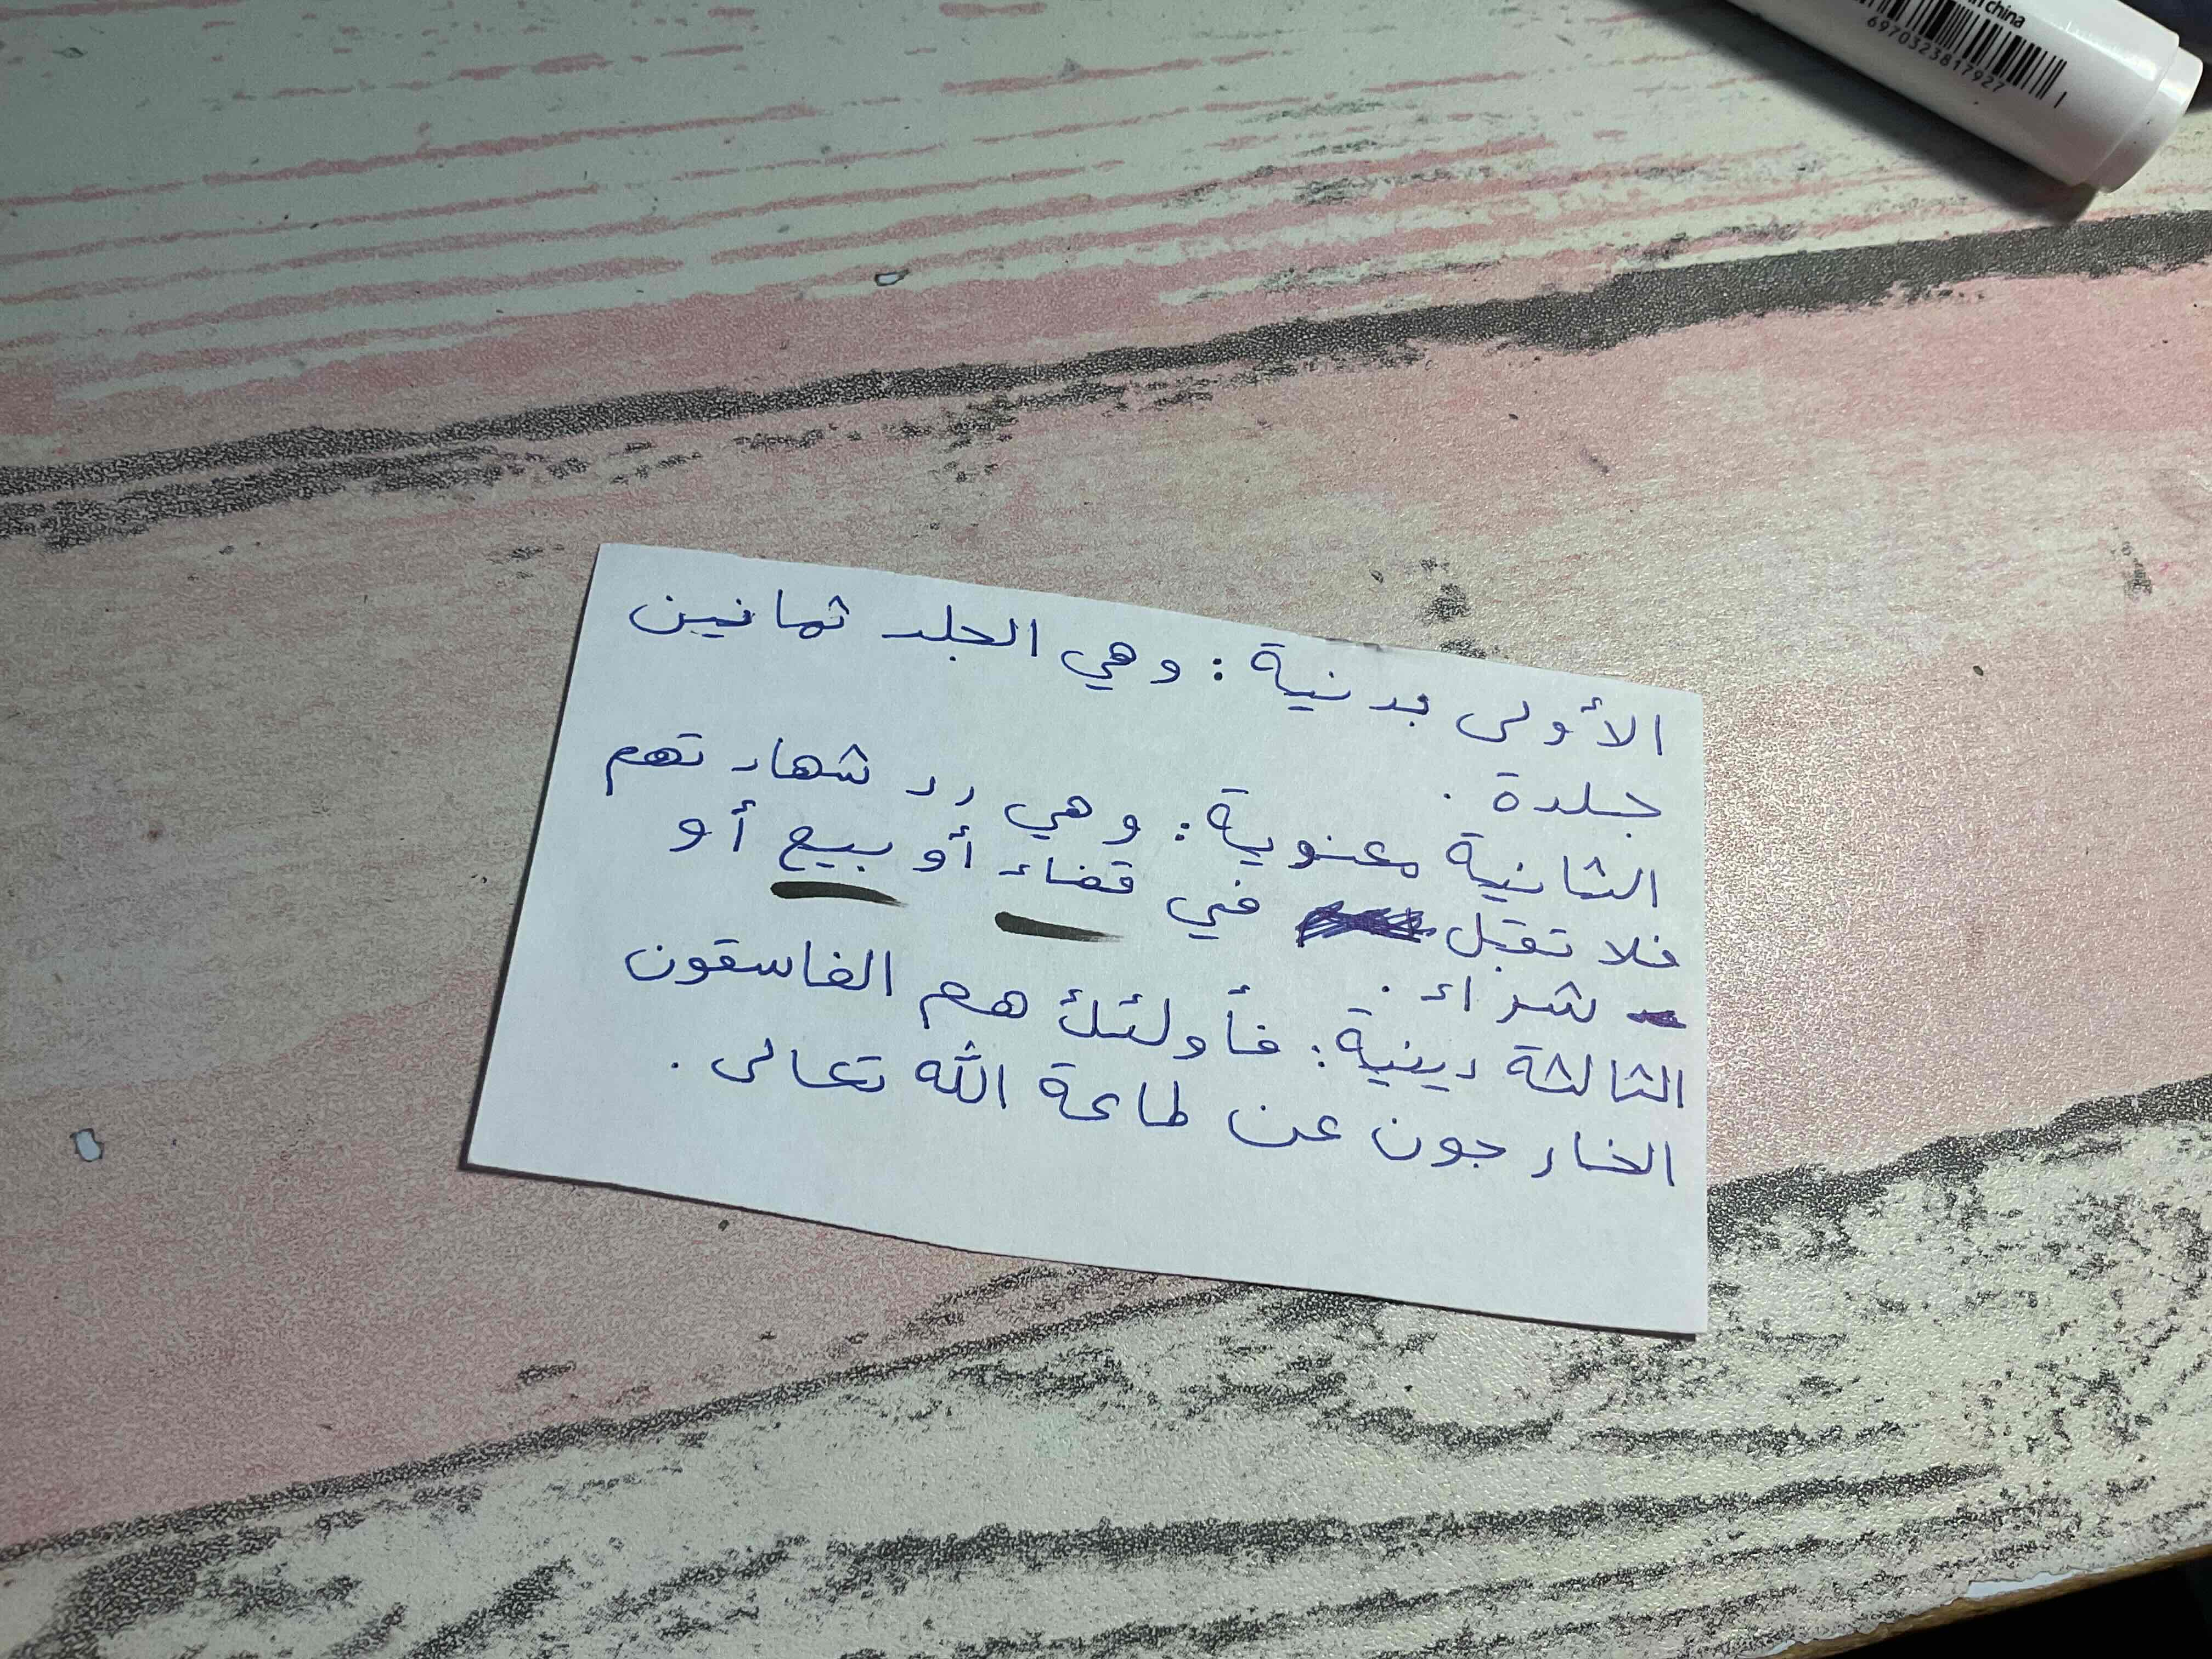 in china
6970323817927
الأولى بدنية : وهي الجلد ثمانين
جلدة .
الثانية معنوية : وهي رد شهادتهم
فلا تقبل في قضاء أو بيع أو
شراء .
الثالثة دينية : فأولئك هم الفاسقون
الخارجون عن طاعة الله تعالى .